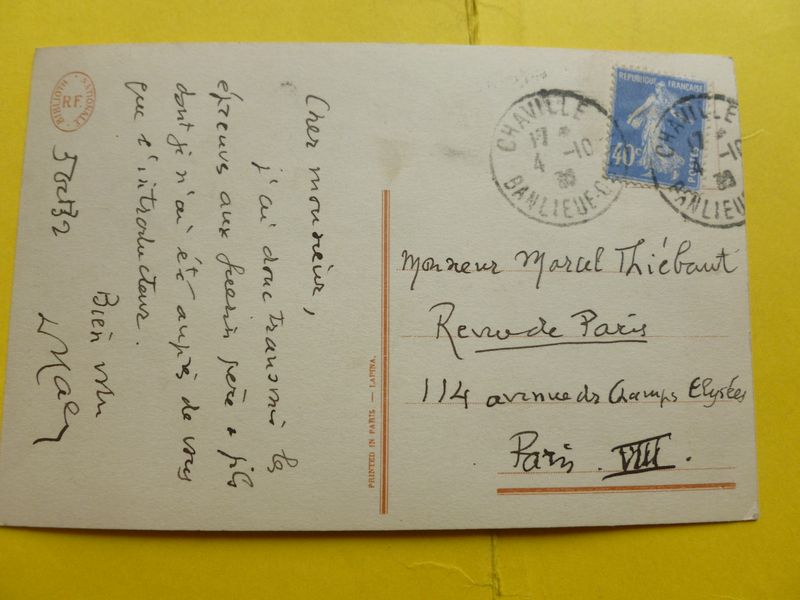 Cher monsieur,
j'ai donc transmis les
épreuves aux Guérin père & fils
dont je n'ai été auprès de vous
que l'introducteur.
Bien votre
5 oct 32
BIBLIOTH NATIONALE
R.F.
PRINTED IN PARIS — LAPINA.
RÉPUBLIQUE FRANÇAISE
40c
POSTES
CHAVILLE
17
4 -10
BANLIEUE
CHAVILLE
17
4 -10
BANLIEUE
Monsieur Marcel Thiébaut
Revue de Paris
114 avenue des Champs Elysées
Paris. VIII.